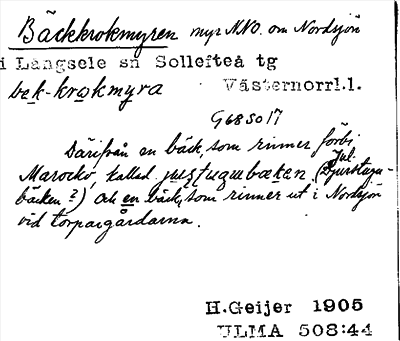 Bäckkrokmyren myr M.NO. om Nordsjön
i Långsele sn Sollefteå tg
bek-krokmyra Västernorrl.l.
G68 SO 17
Därifrån en bäck, som rinner förbi
Marocko, kallad
jul.
bäcken ?) och en bäck, som rinner ut i Nordsjön
vid torpargårdarna.
H.Geijer 1905
ULMA 508:44